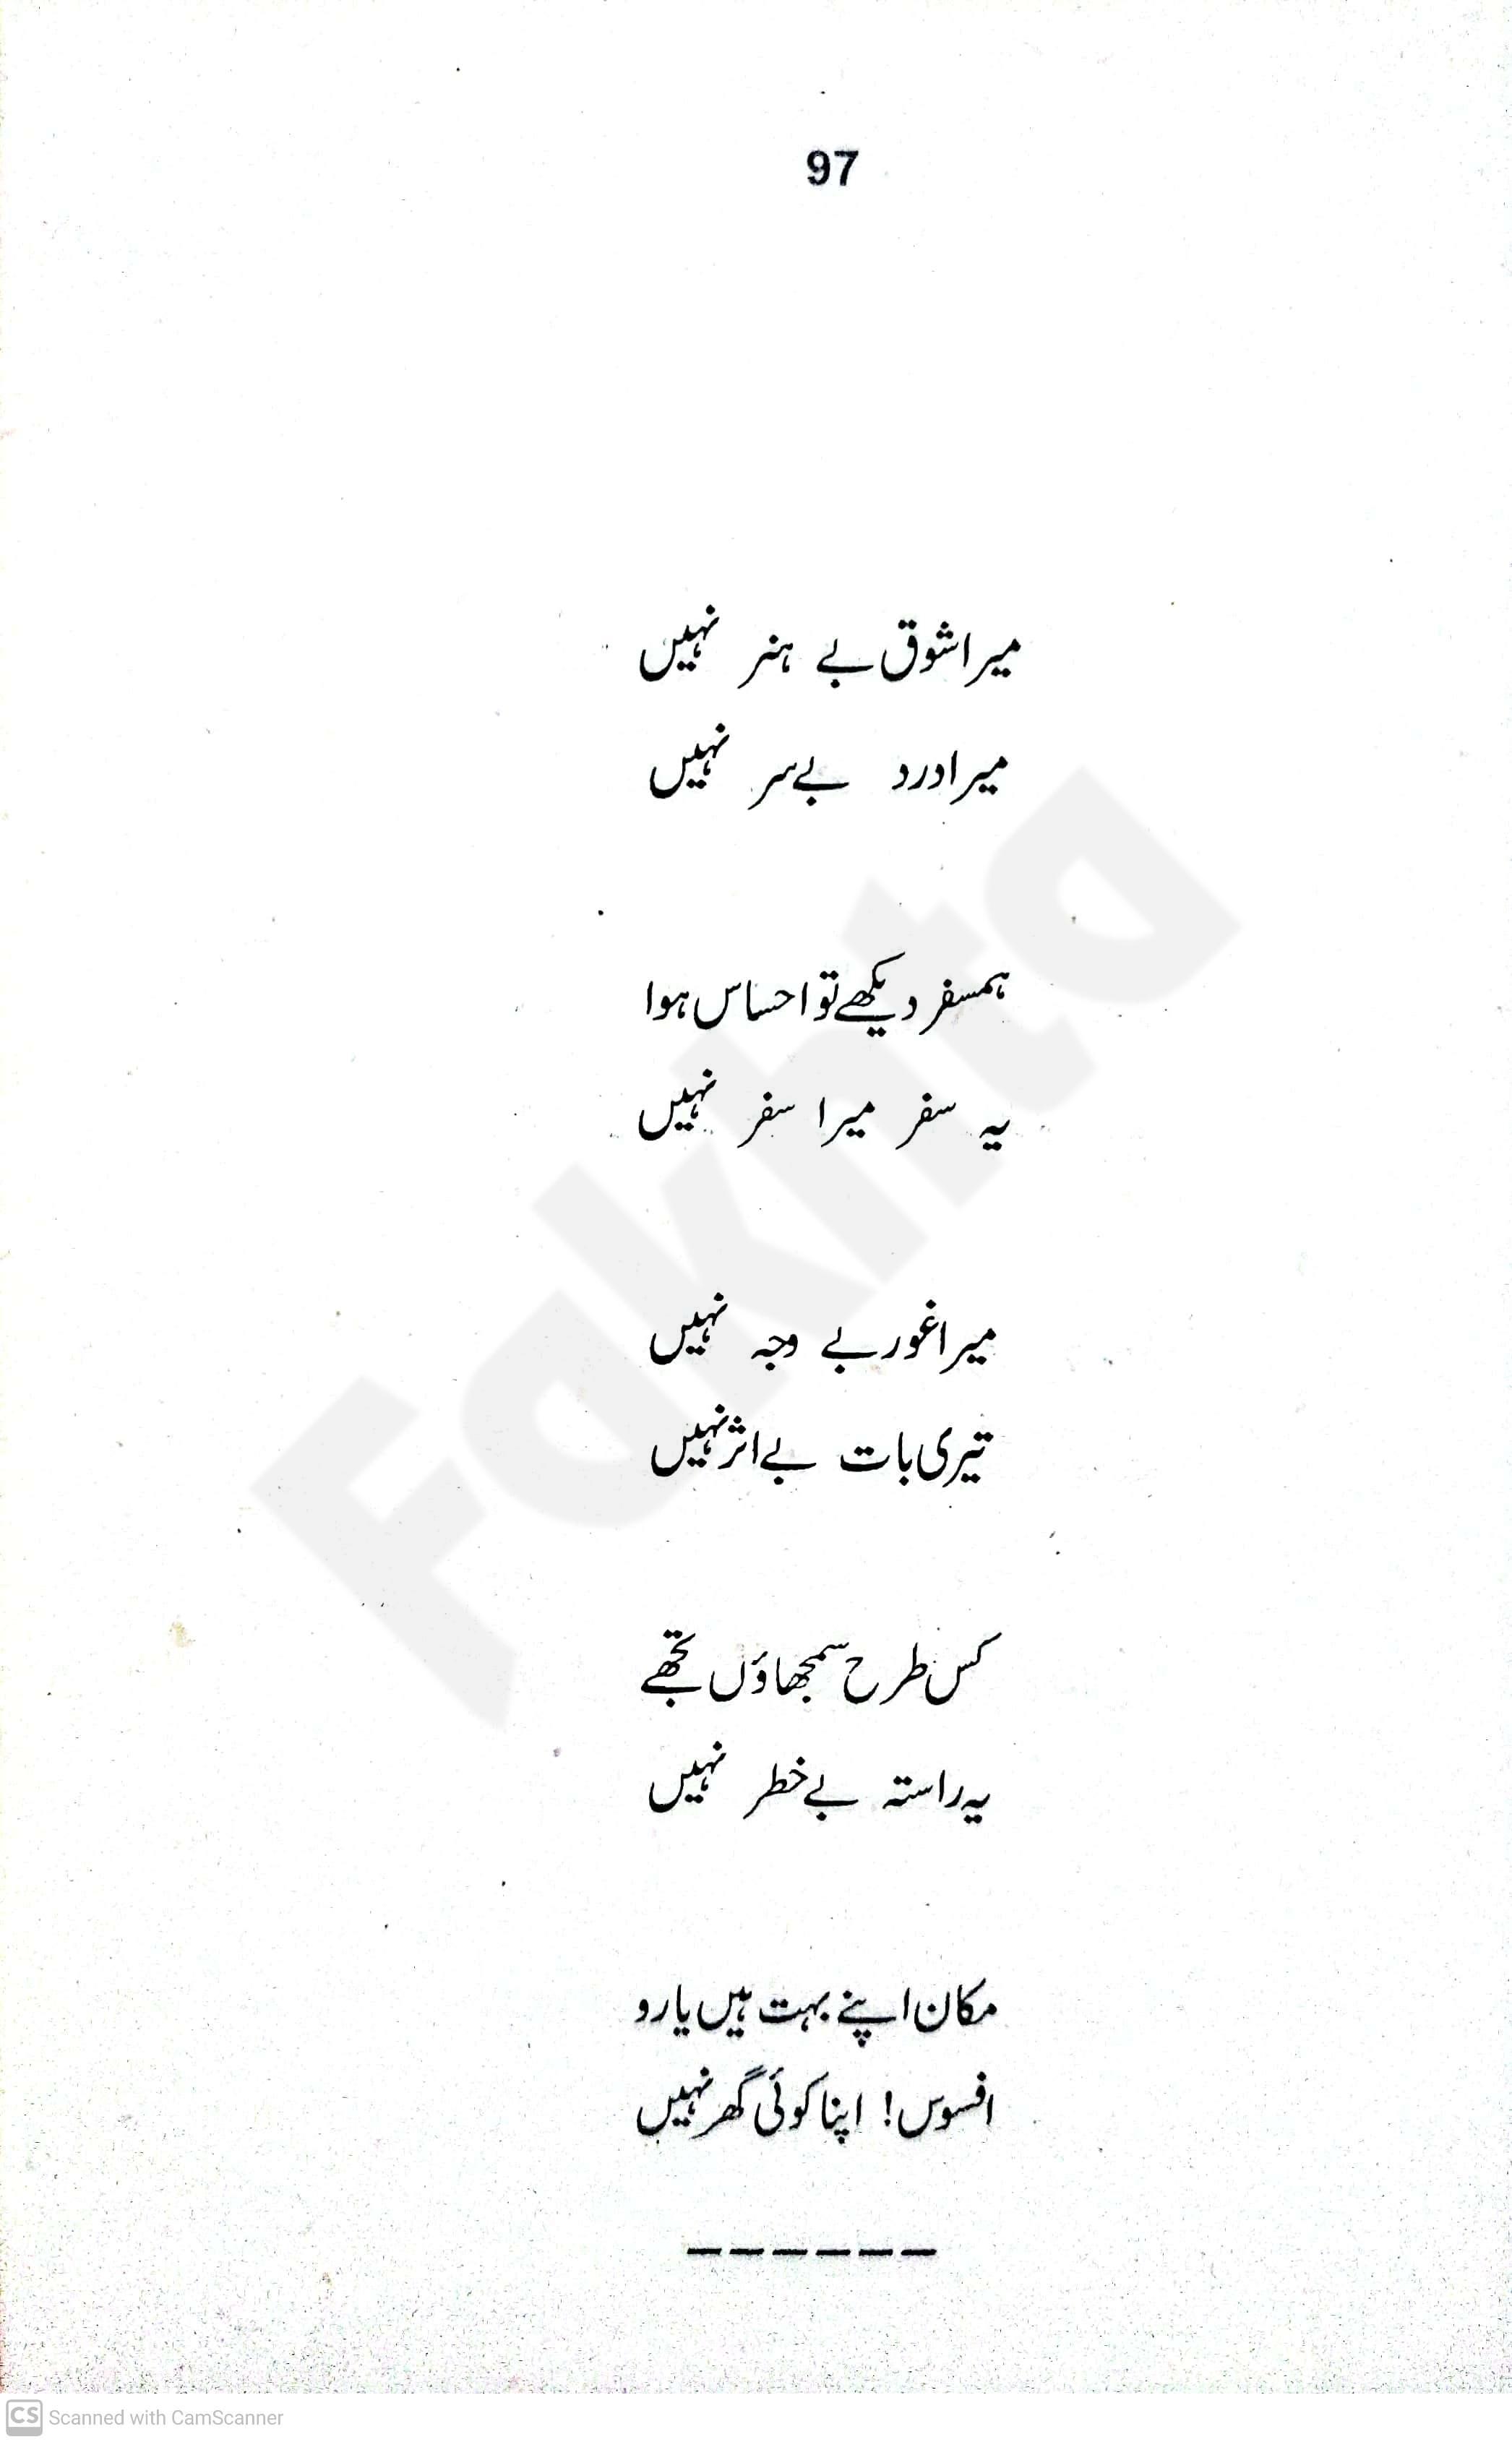 97
میرا شوق بے ہنر نہیں
میرا درد بے سر نہیں
ہمسفر دیکھے تو احساس ہوا
یہ سفر میرا سفر نہیں
میرا غور بے وجہ نہیں
تیری بات بے اثر نہیں
کس طرح سمجھاؤں تجھے
یہ راستہ بے خطر نہیں
مکان اپنے بہت ہیں یارو
افسوس! اپنا کوئی گھر نہیں
------
Fakhta
CS Scanned with CamScanner